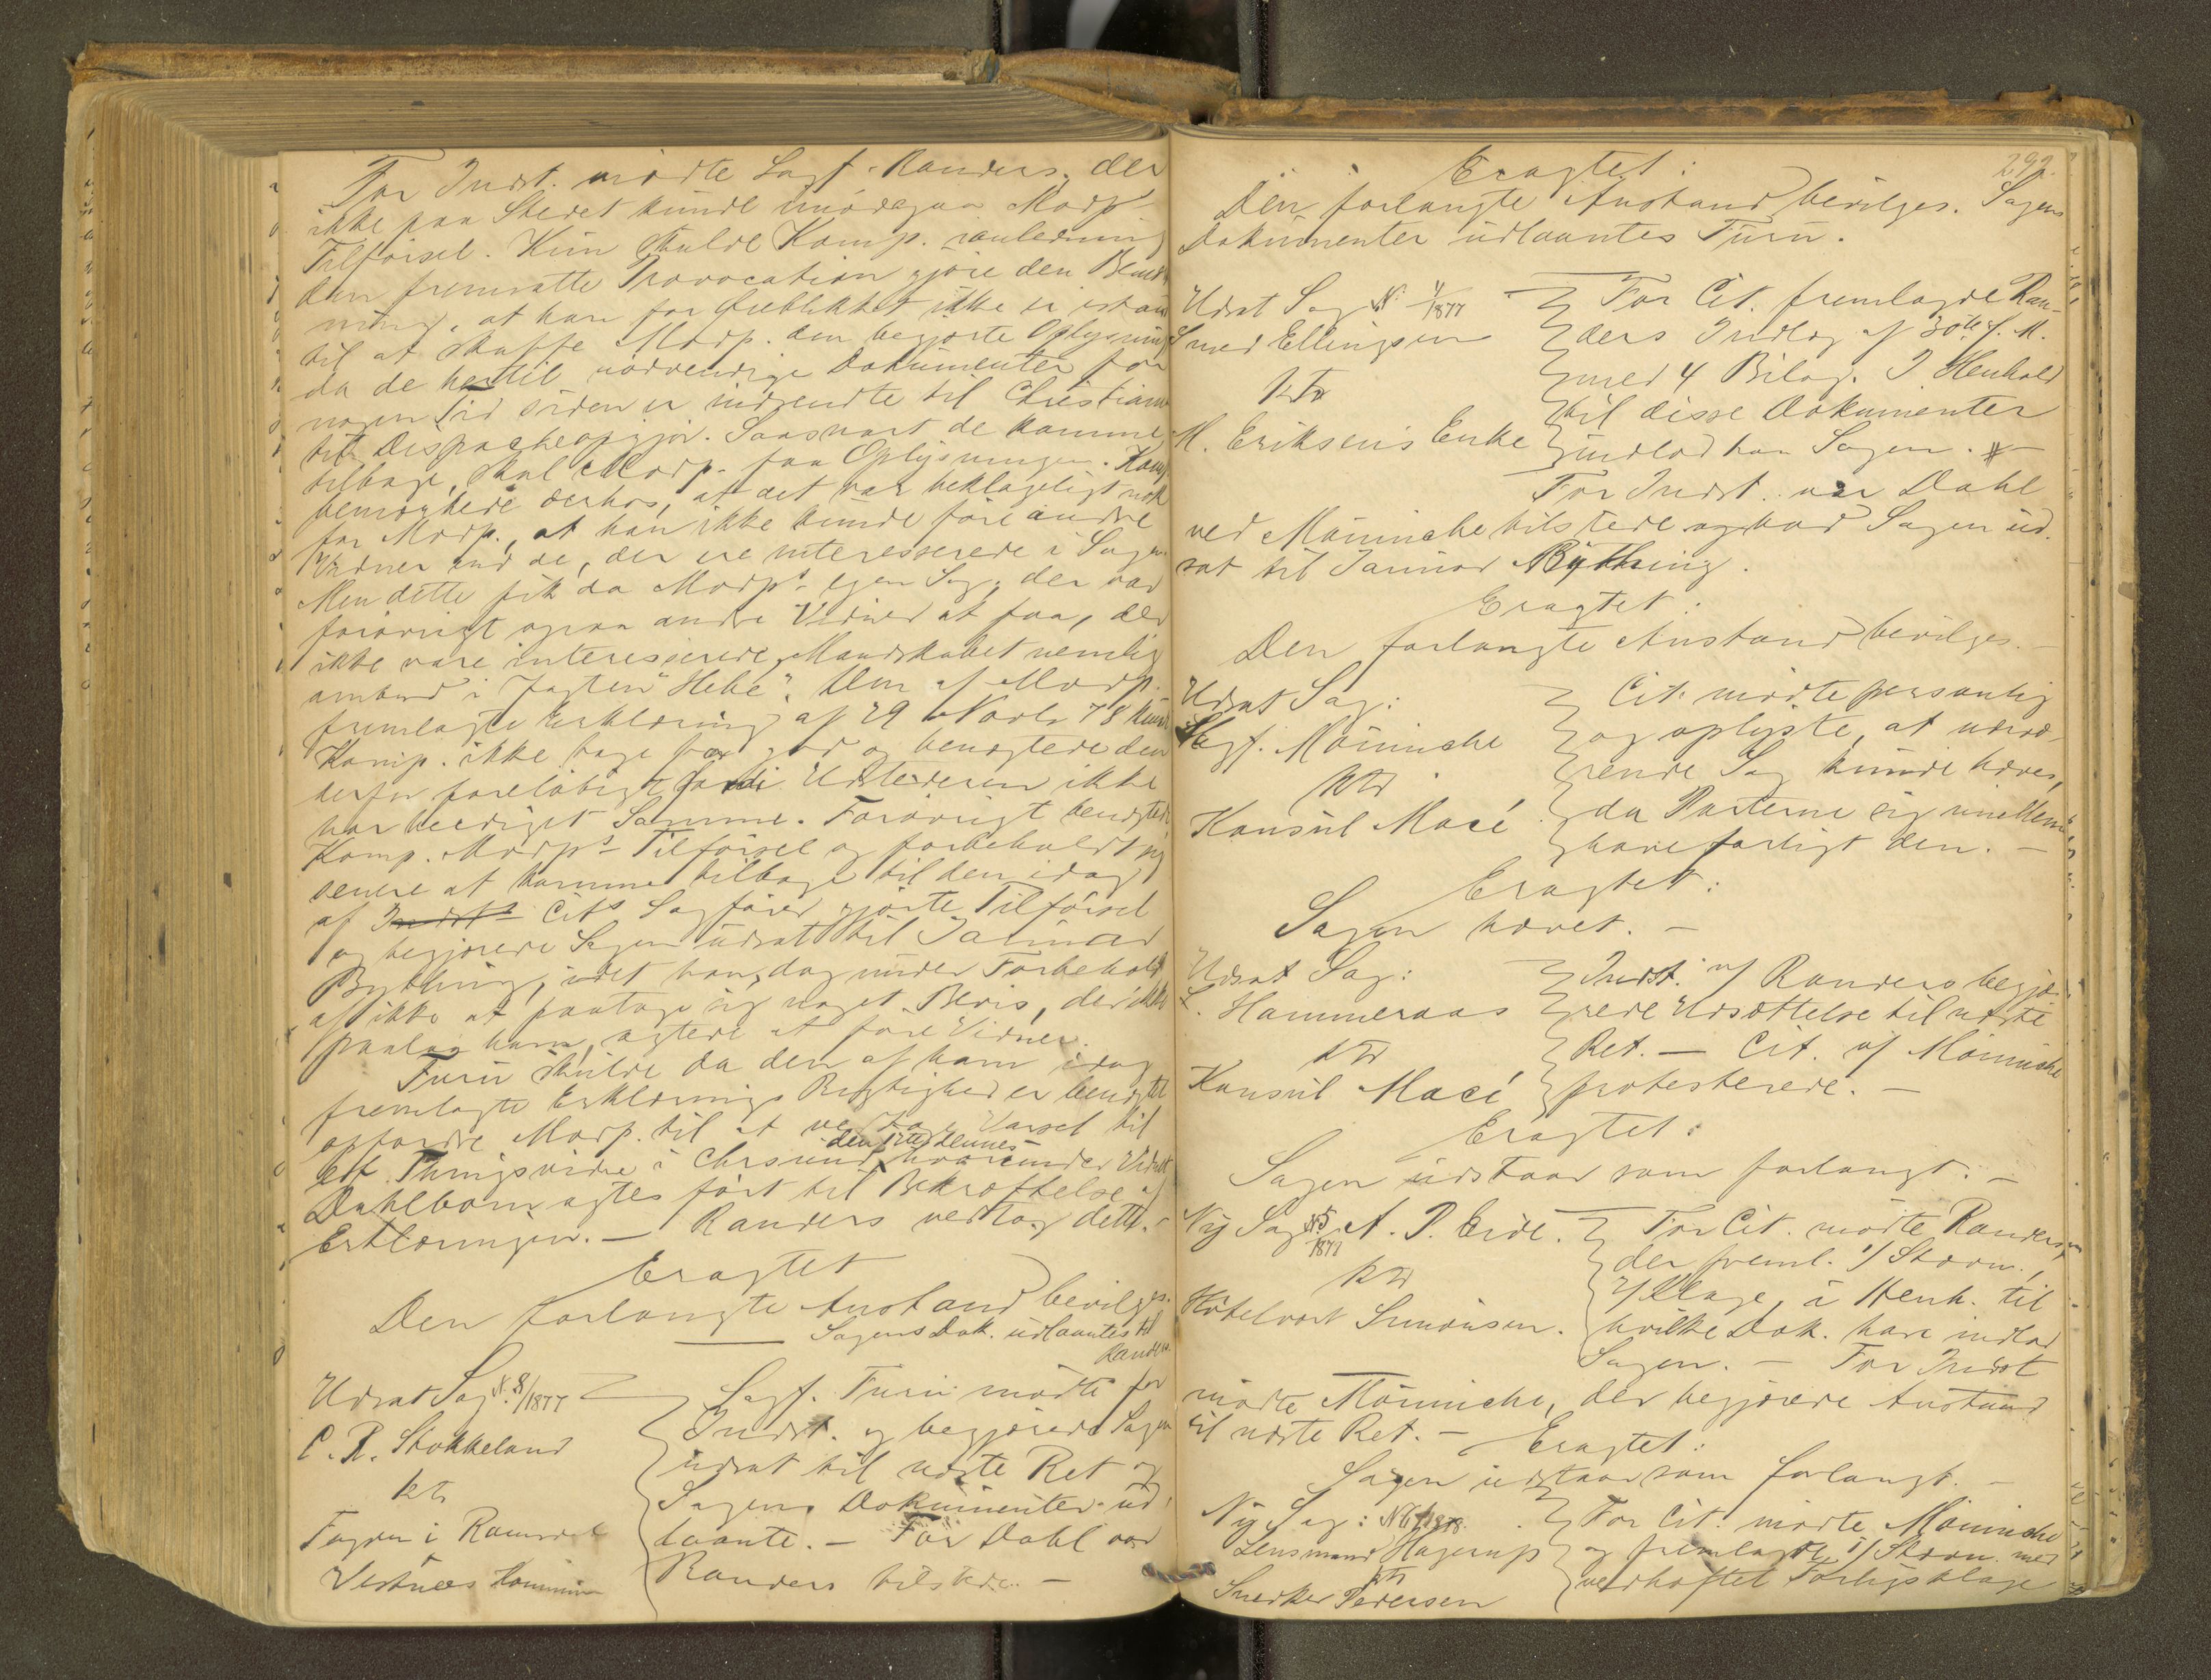 For Indst. mødte Sagf. Randers, der
ikke paa Stedet kunde imødegaa Modp.
Tilførsel. Kun skulde Komp. i anledning
den fremsatte Provocation gjøre den Bemærk-
ning, at han for Øieblikket ikke er istand
til at skaffe Modp. den begjærte Oplysning
da de hertil nødvendige Dokumenter for
nogen Tid siden er indsendte til Christiania
til Dispacheopgjør. Saasnart de komme
tilbage, skal Modp. faa Oplysningen. Komp.
bemærkede derhos, at det var beklageligt nok
for Modp., at han ikke kunde føre andre
Vidner end de, der ere interesserede i Sagen
Men dette fik da Modps. egen Sag, der var
forøvrigt ogsaa andre Vidner at faa, der
ikke vare interesserede, Mandskabet nemlig
ombord i Jagten "Hebe". Den af Modp.
fremlagte Erklæring af 29 Novbr 78 kunde
Komp. ikke tage for god og benægtede den
derfor foreløbigt fordi Udstederen ikke
har beediget Samme. Forøvrigt benægtede
Komp. Modps. Tilførsel og forbeholdt sig
senere at komme tilbage til den idag
af Indsts Cits Sagfører gjorte Tilførsel
og begjærede Sagen udsat til Januar
Bything, idet han, dog under Forbehold
af ikke at paatage sig noget Bevis, der ikke
paalaa ham, agtede at føre Vidner.
Furu skulde da den af ham idag
fremlagte Erklærings Rigtighed er benægtet
opfordre Modp. til at vedtage Varsel til
et Thingsvidne i Chrsund den dennes hvorunder Vidnet
Dahlbom agtes ført til Bekræftelse af
Erklæringen. — Randers vedtog dette. —
Eragtet
Den forlangte Anstand bevilges.
Sagens Dok. udlaantes til
Randers
Udsat Sag N. 8/1877
C. R. Stokkeland
ktr
Fogden i Romsdal
Vestnæs Kommune
Sagf. Furu mødte for
Indst. og begjærede Sagen
udsat til næste Ret og
Sagens Dokumenter ud-
laante. — For Dahl var
Randers tilstede. —
292.
Eragtet:
Den forlangte Anstand bevilges. Sagens
Dokumenter udlaantes Furu.
Udsat Sag N. 4/1877
Smed Ellingsen
ktr
M. Eriksens Enke
For Cit. fremlagde Ran-
ders Indlæg af 30te f. M.
med 4 Bilag. I Henhold
til disse Dokumenter
indlod han Sagen. —
For Indst. var Dahl
ved Mönniche tilstede og bad Sagen ud-
sat til Januar Bything.
Eragtet:
Den forlangte Anstand bevilges. —
Udsat Sag:
Sagf. Mönniche
ktr
Konsul Macé
Cit. mødte personlig
og oplyste, at nærvæ-
rende Sag kunde hæves,
da Parterne sig imellem
have forligt den. —
Eragtet:
Sagen hævet. —
Udsat Sag:
L. Hammeraas
ktr
Konsul Macé
Indst. v/ Randers begjæ-
rede Udsættelse til næste
Ret. — Cit. v/ Mönniche
protesterede. —
Eragtet:
Sagen udstaar som forlangt. —
Ny Sag N 5/1878 A. P. Eide.
ktr
Hôtelvært Simonsen.
For Cit. mødte Randers,
der freml. 1/ Stævn.,
2/ Klage, i Henh. til
hvilke Dok. han indlod
Sagen. — For Indst
mødte Mönniche, der begjærede Anstand
til næste Ret. — Eragtet:
Sagen udstaar som forlangt. —
Ny Sag: N 6/1878.
Lensmand Hagerup
ktr
Snedker Pedersen
For Cit. mødte Mönniche
og fremlagde 1/ Stævn. med
vedhæftet Forligsklage